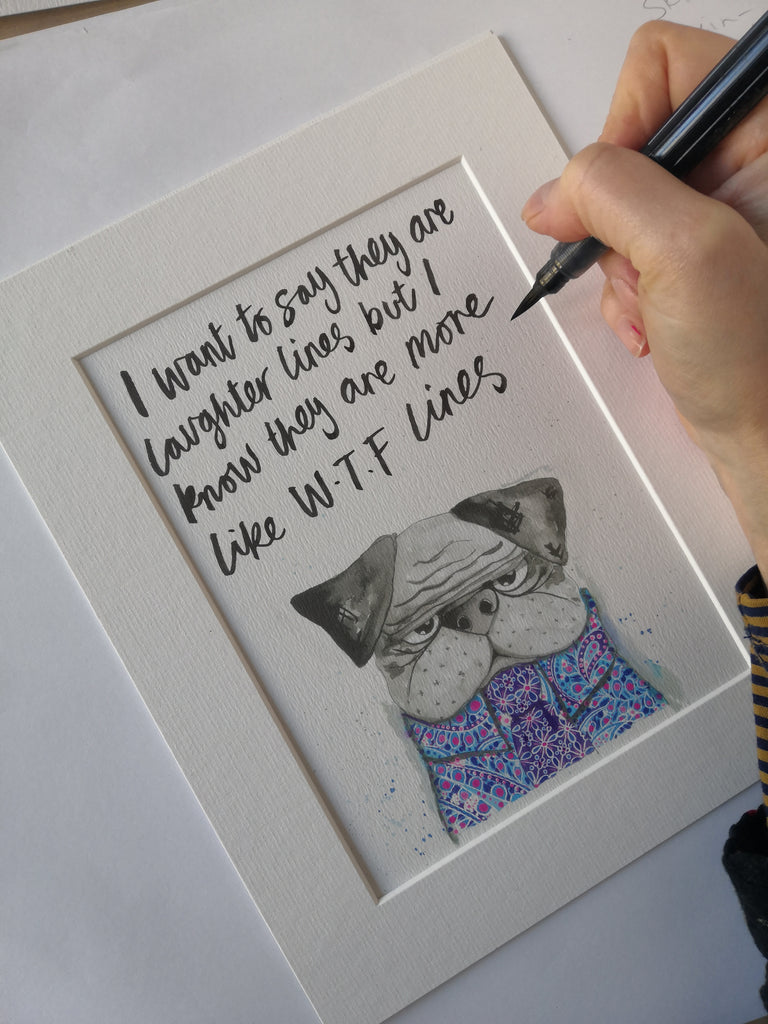 I want to say they are
laughter lines but I
know they are more
like W.T.F lines